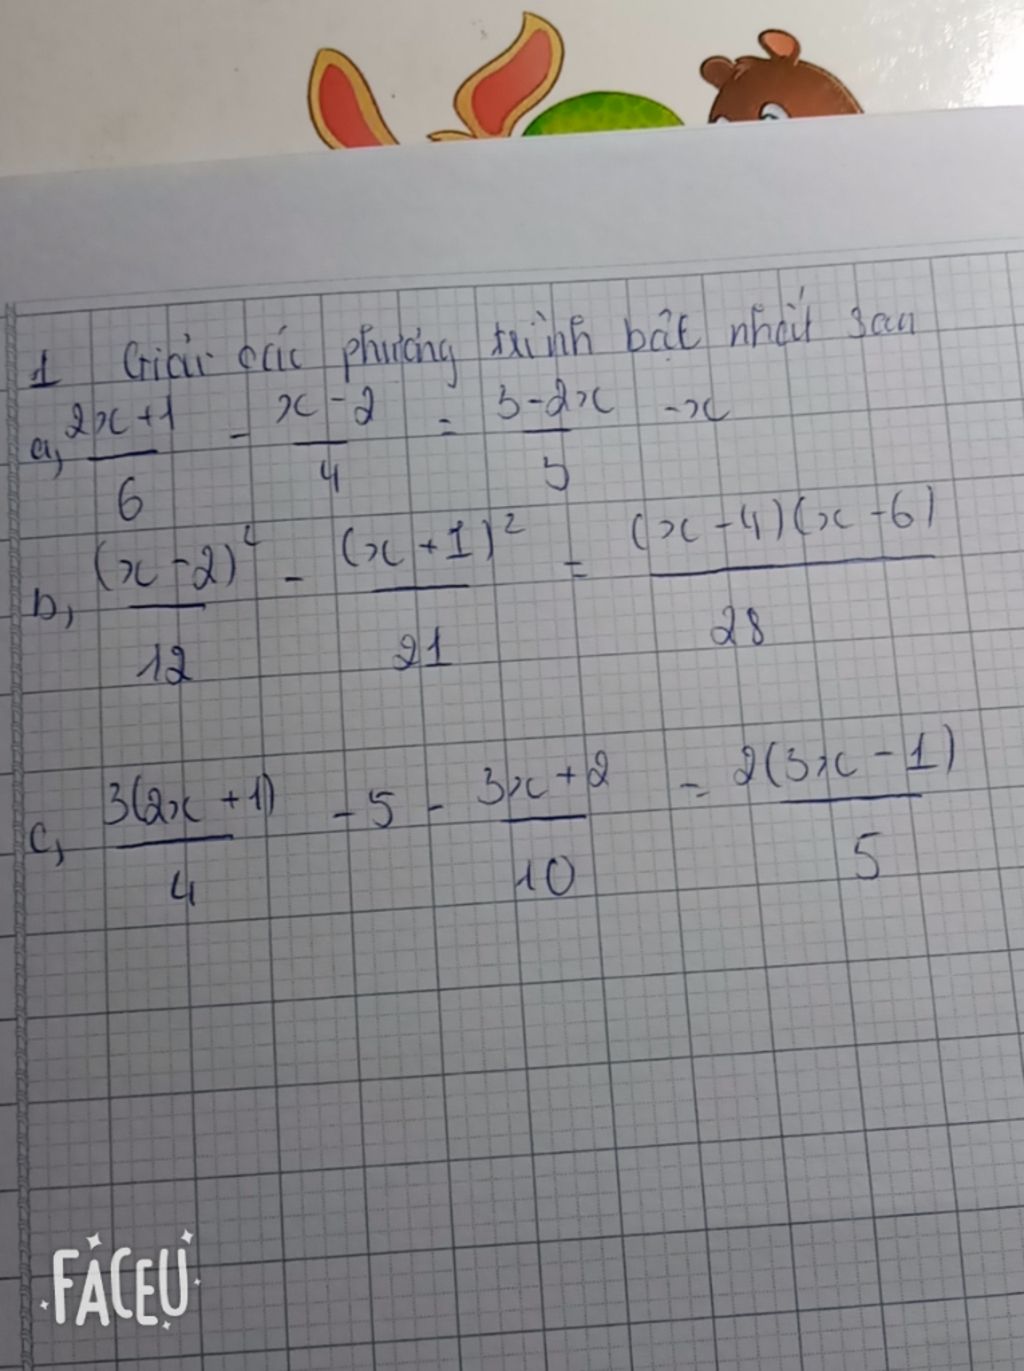 1 Giải các phương trình bậc nhất sau
a, (2x+1)/6 - (x-2)/4 = (3-2x)/3 - x
b, (x-2)²/12 - (x+1)²/21 = (x-4)(x-6)/28
c, 3(2x+1)/4 - 5 - (3x+2)/10 = 2(3x-1)/5
FACEU